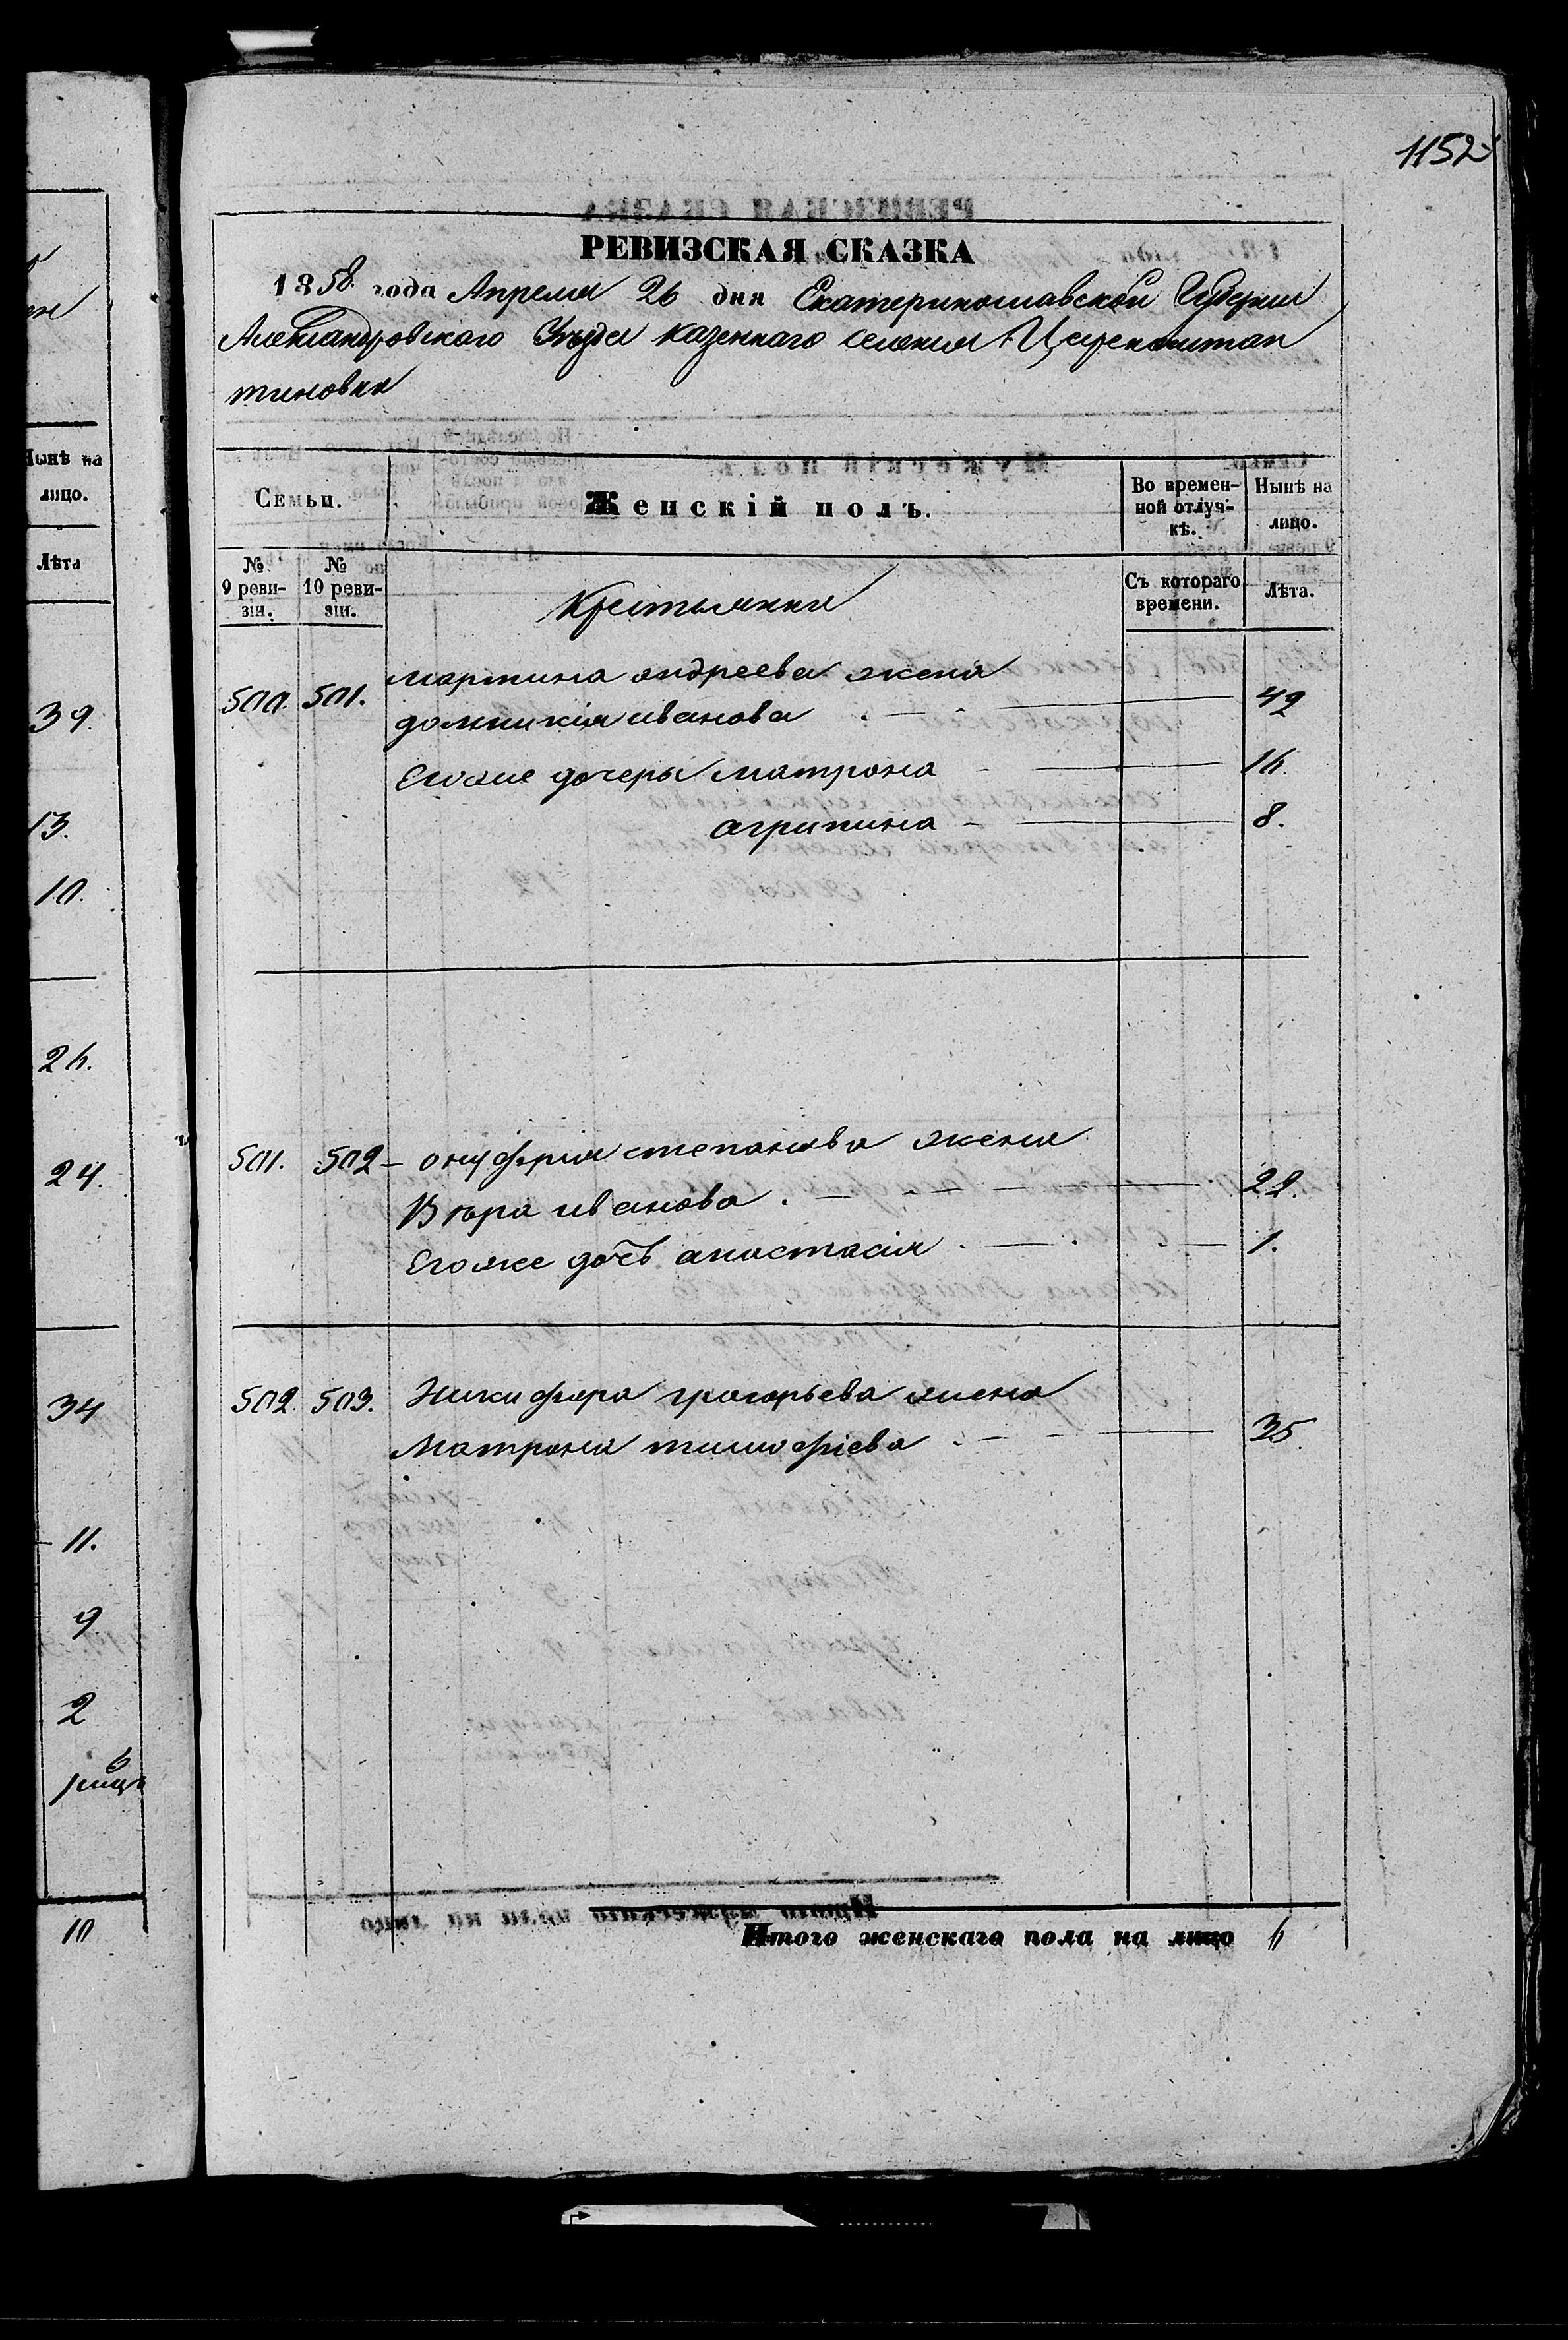 1152
РЕВИЗСКАЯ СКАЗКА
1858 года Апреля 26 дня Екатеринославской Губернии
Александровского Уезда казенного селения Цареконстан
тиновки
Семьи.
Женскій полъ.
Во времен-
ной отлуч-
кѣ.
Нынѣ на
лицо.
№
9 реви-
зіи.
№
10 реви-
зіи.
Съ котораго
времени.
Лѣта.
Крестьянки
500. 501. мартина андреева жена
домникія иванова 42
Егоже дочеры матрона 16.
агрипина 8.
501. 502 онуфрия степанова жена
Вгора иванова 22.
Егоже дочь анастасія 1.
502. 503. Никифора григорьева жена
Матрона тимофіева 35.
Итого женскаго пола на лицо 6
Нынѣ на
лицо.
Лѣта
39.
13.
10.
26.
24.
34
11.
9
2
10